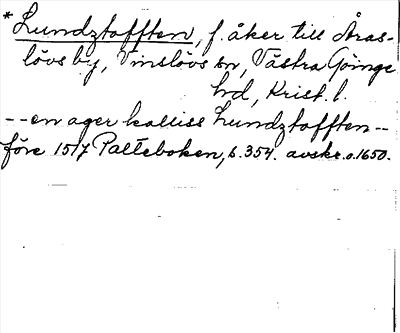 * Lundztofften, f. åker till Åras-
lövs by, Vinslövs sn, Västra Göinge
hd, Krist. l.
-- en ager kalliss Lundztofften --
före 1517 Palteboken, s. 354. avskr. o. 1650.